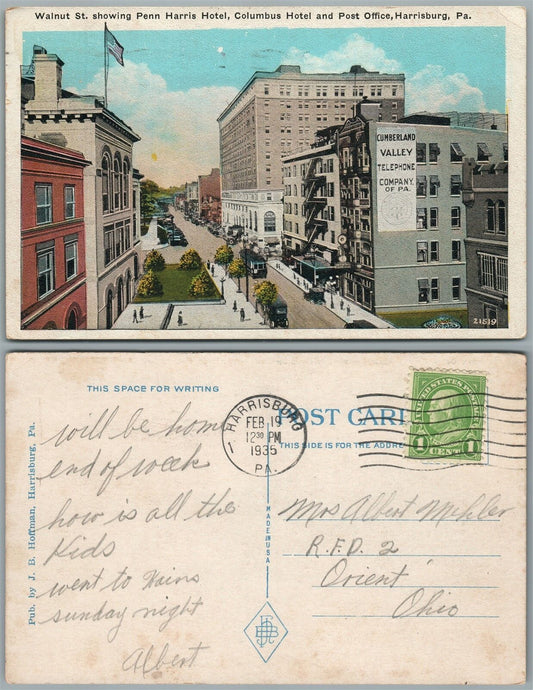 Walnut St. showing Penn Harris Hotel, Columbus Hotel and Post Office, Harrisburg, Pa.
CUMBERLAND
VALLEY
TELEPHONE
COMPANY.
OF PA.
21519
THIS SPACE FOR WRITING
will be home
end of week
how is all the
Kids
went to
sunday night
Albert
Pub. by J. B. Hoffman, Harrisburg, Pa.
MADE IN USA
HARRISBURG
FEB 19
12 30 PM
1935
PA.
1
POST CARD
THIS SIDE IS FOR THE ADDRESS
UNITED STATES POSTAGE
1 CENT 1
Mrs Albert
R.F.D. 2
Orient
Ohio